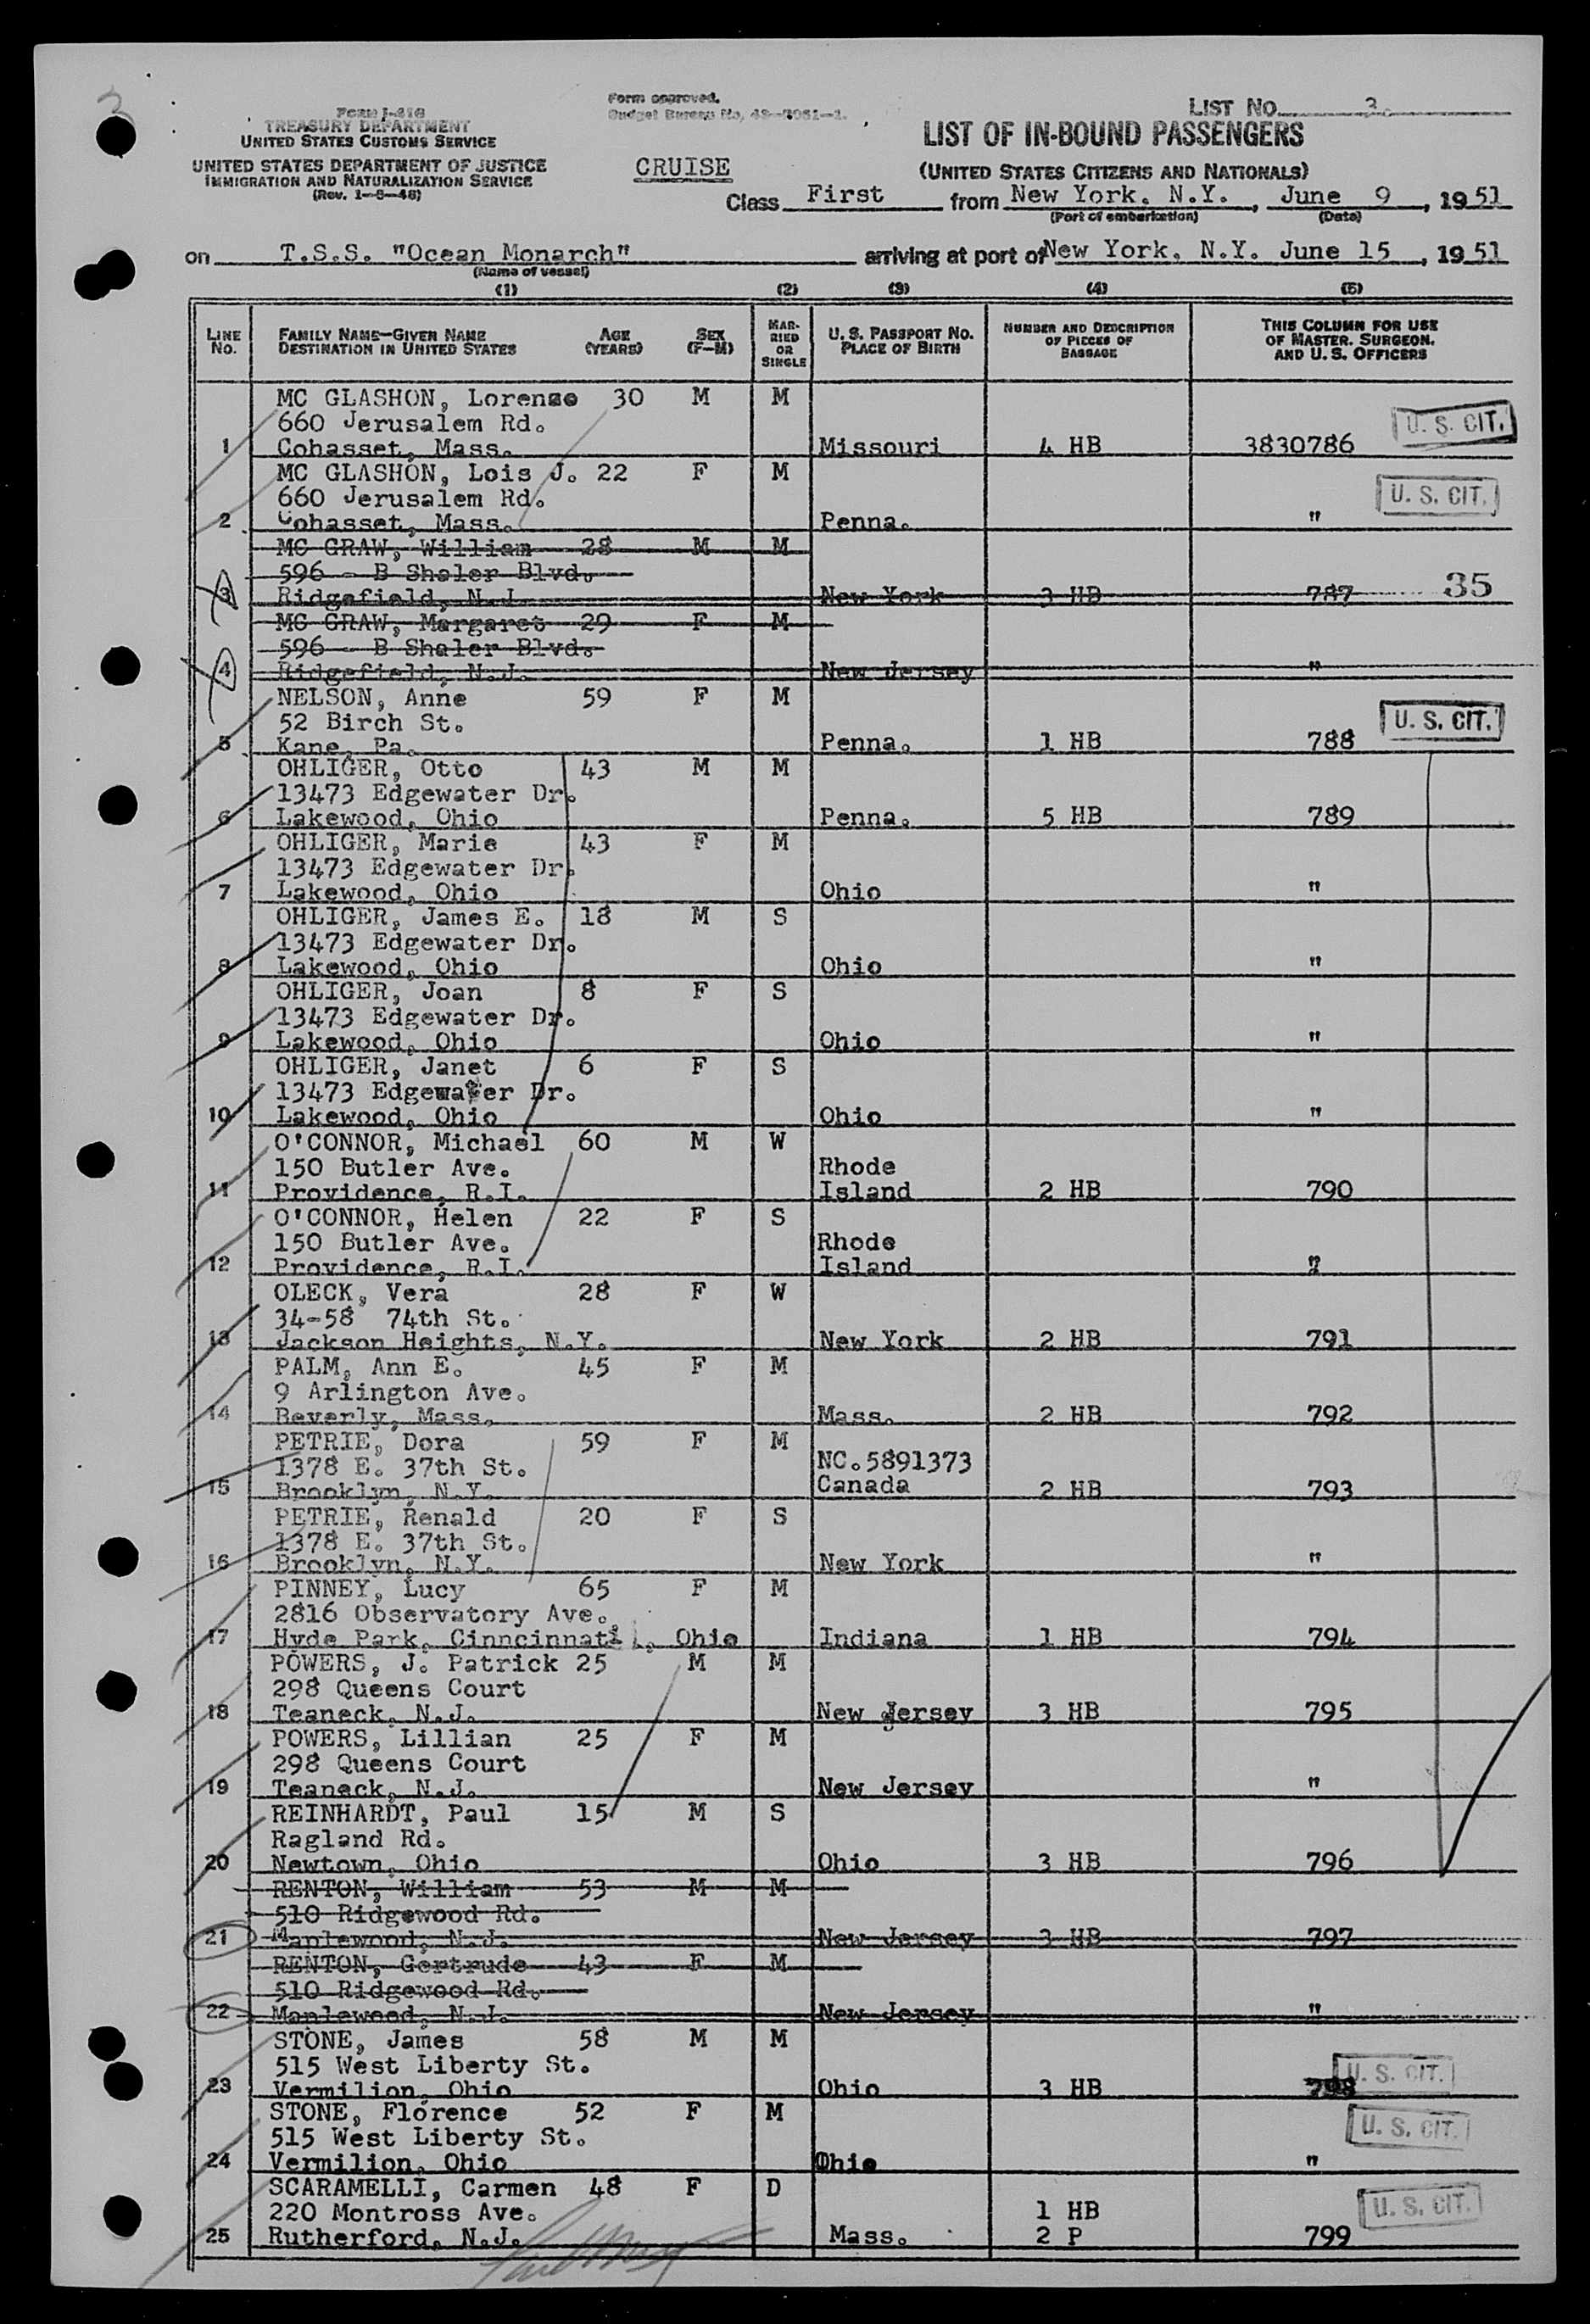 3
Form I-416
TREASURY DEPARTMENT
UNITED STATES CUSTOMS SERVICE
UNITED STATES DEPARTMENT OF JUSTICE
IMMIGRATION AND NATURALIZATION SERVICE
(Rev. 1-8-48)
Form approved.
Budget Bureau No. 43-R061-1.
LIST No. 3.
LIST OF IN-BOUND PASSENGERS
(UNITED STATES CITIZENS AND NATIONALS)
CRUISE
Class First from New York. N.Y., June 9, 1951
(Port of embarkation) (Date)
on T.S.S. "Ocean Monarch" arriving at port of New York. N.Y. June 15, 1951
(Name of vessel)
(1) (2) (3) (4) (5)
LINE No. FAMILY NAME—GIVEN NAME DESTINATION IN UNITED STATES AGE (YEARS) SEX (F—M) MARRIED OR SINGLE U. S. PASSPORT No. PLACE OF BIRTH NUMBER AND DESCRIPTION OF PIECES OF BAGGAGE THIS COLUMN FOR USE OF MASTER. SURGEON. AND U. S. OFFICERS
MC GLASHON, Lorenzo 30 M M
660 Jerusalem Rd. U. S. CIT.
1 Cohasset, Mass. Missouri 4 HB 3830786
MC GLASHON, Lois J. 22 F M
660 Jerusalem Rd. U. S. CIT.
2 Cohasset, Mass. Penna. "
MC GRAW, William 28 M M
596 - B Shaler Blvd.
3 Ridgefield, N.J. New York 3 HB 787 35
MC GRAW, Margaret 29 F M
596 - B Shaler Blvd.
4 Ridgefield, N.J. New Jersey "
NELSON, Anne 59 F M
52 Birch St. U. S. CIT.
5 Kane, Pa. Penna. 1 HB 788
OHLIGER, Otto 43 M M
13473 Edgewater Dr.
6 Lakewood, Ohio Penna. 5 HB 789
OHLIGER, Marie 43 F M
13473 Edgewater Dr.
7 Lakewood, Ohio Ohio "
OHLIGER, James E. 18 M S
13473 Edgewater Dr.
8 Lakewood, Ohio Ohio "
OHLIGER, Joan 8 F S
13473 Edgewater Dr.
9 Lakewood, Ohio Ohio "
OHLIGER, Janet 6 F S
13473 Edgewater Dr.
10 Lakewood, Ohio Ohio "
O'CONNOR, Michael 60 M W
150 Butler Ave. Rhode
11 Providence, R.I. Island 2 HB 790
O'CONNOR, Helen 22 F S
150 Butler Ave. Rhode
12 Providence, R.I. Island "
OLECK, Vera 28 F W
34-58 74th St.
13 Jackson Heights, N.Y. New York 2 HB 791
PALM, Ann E. 45 F M
9 Arlington Ave.
14 Beverly, Mass. Mass. 2 HB 792
PETRIE, Dora 59 F M
1378 E. 37th St. NC.5891373
15 Brooklyn, N.Y. Canada 2 HB 793
PETRIE, Renald 20 F S
1378 E. 37th St.
16 Brooklyn, N.Y. New York "
PINNEY, Lucy 65 F M
2816 Observatory Ave.
17 Hyde Park, Cinncinnati, Ohio Indiana 1 HB 794
POWERS, J. Patrick 25 M M
298 Queens Court
18 Teaneck, N.J. New Jersey 3 HB 795
POWERS, Lillian 25 F M
298 Queens Court
19 Teaneck, N.J. New Jersey "
REINHARDT, Paul 15 M S
Ragland Rd.
20 Newtown, Ohio Ohio 3 HB 796
RENTON, William 53 M M
510 Ridgewood Rd.
21 Maplewood, N.J. New Jersey 3 HB 797
RENTON, Gertrude 43 F M
510 Ridgewood Rd.
22 Maplewood, N.J. New Jersey "
STONE, James 58 M M
515 West Liberty St. U. S. CIT.
23 Vermilion, Ohio Ohio 3 HB 798
STONE, Florence 52 F M
515 West Liberty St. U. S. CIT.
24 Vermilion, Ohio Ohio "
SCARAMELLI, Carmen 48 F D
220 Montross Ave. 1 HB U. S. CIT.
25 Rutherford, N.J. Mass. 2 P 799